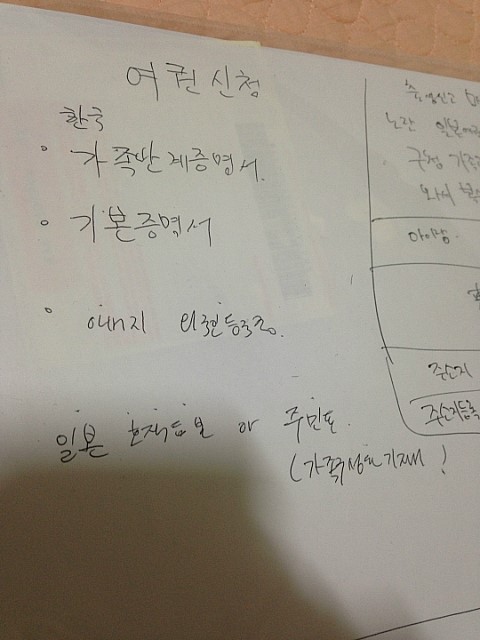 여권신청
한국
◦ 가족관계증명서.
◦ 기본증명서
◦ 아버지 외국인등록증.
일본 호적등본 or 주민표.
출생신고
노란 일본
구청
와서
주소지
주소지등록